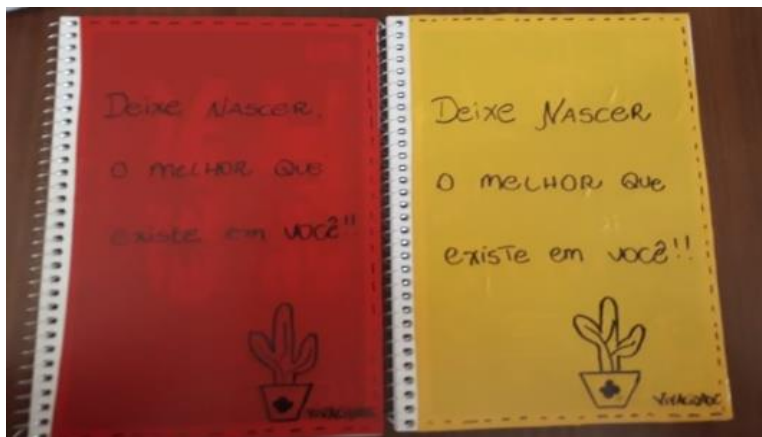 Deixe NASCER.
O MELHOR QUE
existe em você!!
Deixe NASCER
O MELHOR QUE
existe em você!!
VIVACIDADE